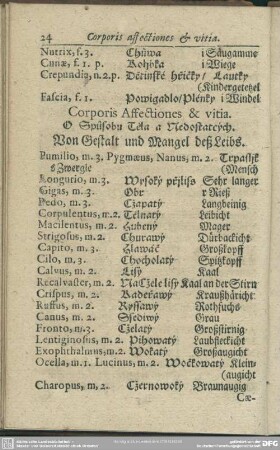 24 Corporis affectiones & vitia.
Nutrix, f. 3. Chůwa i Säugamme
Cunæ, f. 1. p. Kolýbka i Wiege
Crepundia, n. 2. p. Dětinské hčičky/ Lautky
(Kindergetetzel
Fascia, f. 1. Powigadlo/ Plénky i Windel
Corporis Affectiones & vitia.
O Spůsobu Těla a Nedostatcých.
Von Gestalt und Mangel deß Leibs.
Pumilio, m. 3. Pygmæus, Nanus, m. 2. Trpasljk
s Zwergle (Mensch
Longurio, m. 3. Wysoký přjliss Sehr langer
Gigas, m. 3. Obr r Rieß
Pedo, m. 3. Czapatý Langbeinig
Corpulentus, m. 2. Tělnatý Leibicht
Macilentus, m. 2. Hubený Mager
Strigosus, m. 2. Churawý Dürbackicht
Capito, m. 3. Hlawáč Großkopff
Cilo, m. 3. Chocholatý Spitzkopff
Calvus, m. 2. Lisý Kaal
Recalvaster, m. 2. Na Cžele lisý Kaal an der Stirn
Crispus, m. 2. Kadeřawý Kraußhäricht
Ruffus, m. 2. Ryssawý Rothfuchs
Canus, m. 2. Ssediwý Grau
Fronto, m. 3. Cželatý Großstirnig
Lentiginosus, m. 2. Pihowatý Laubfleckicht
Exophthalmus, m. 2. Wokatý Großaugicht
Ocella, m. 1. Lucinus, m. 2. Wočkowatý Klein-
(augicht
Charopus, m. 2. Cžernowoký Braunaugig
Cæ-